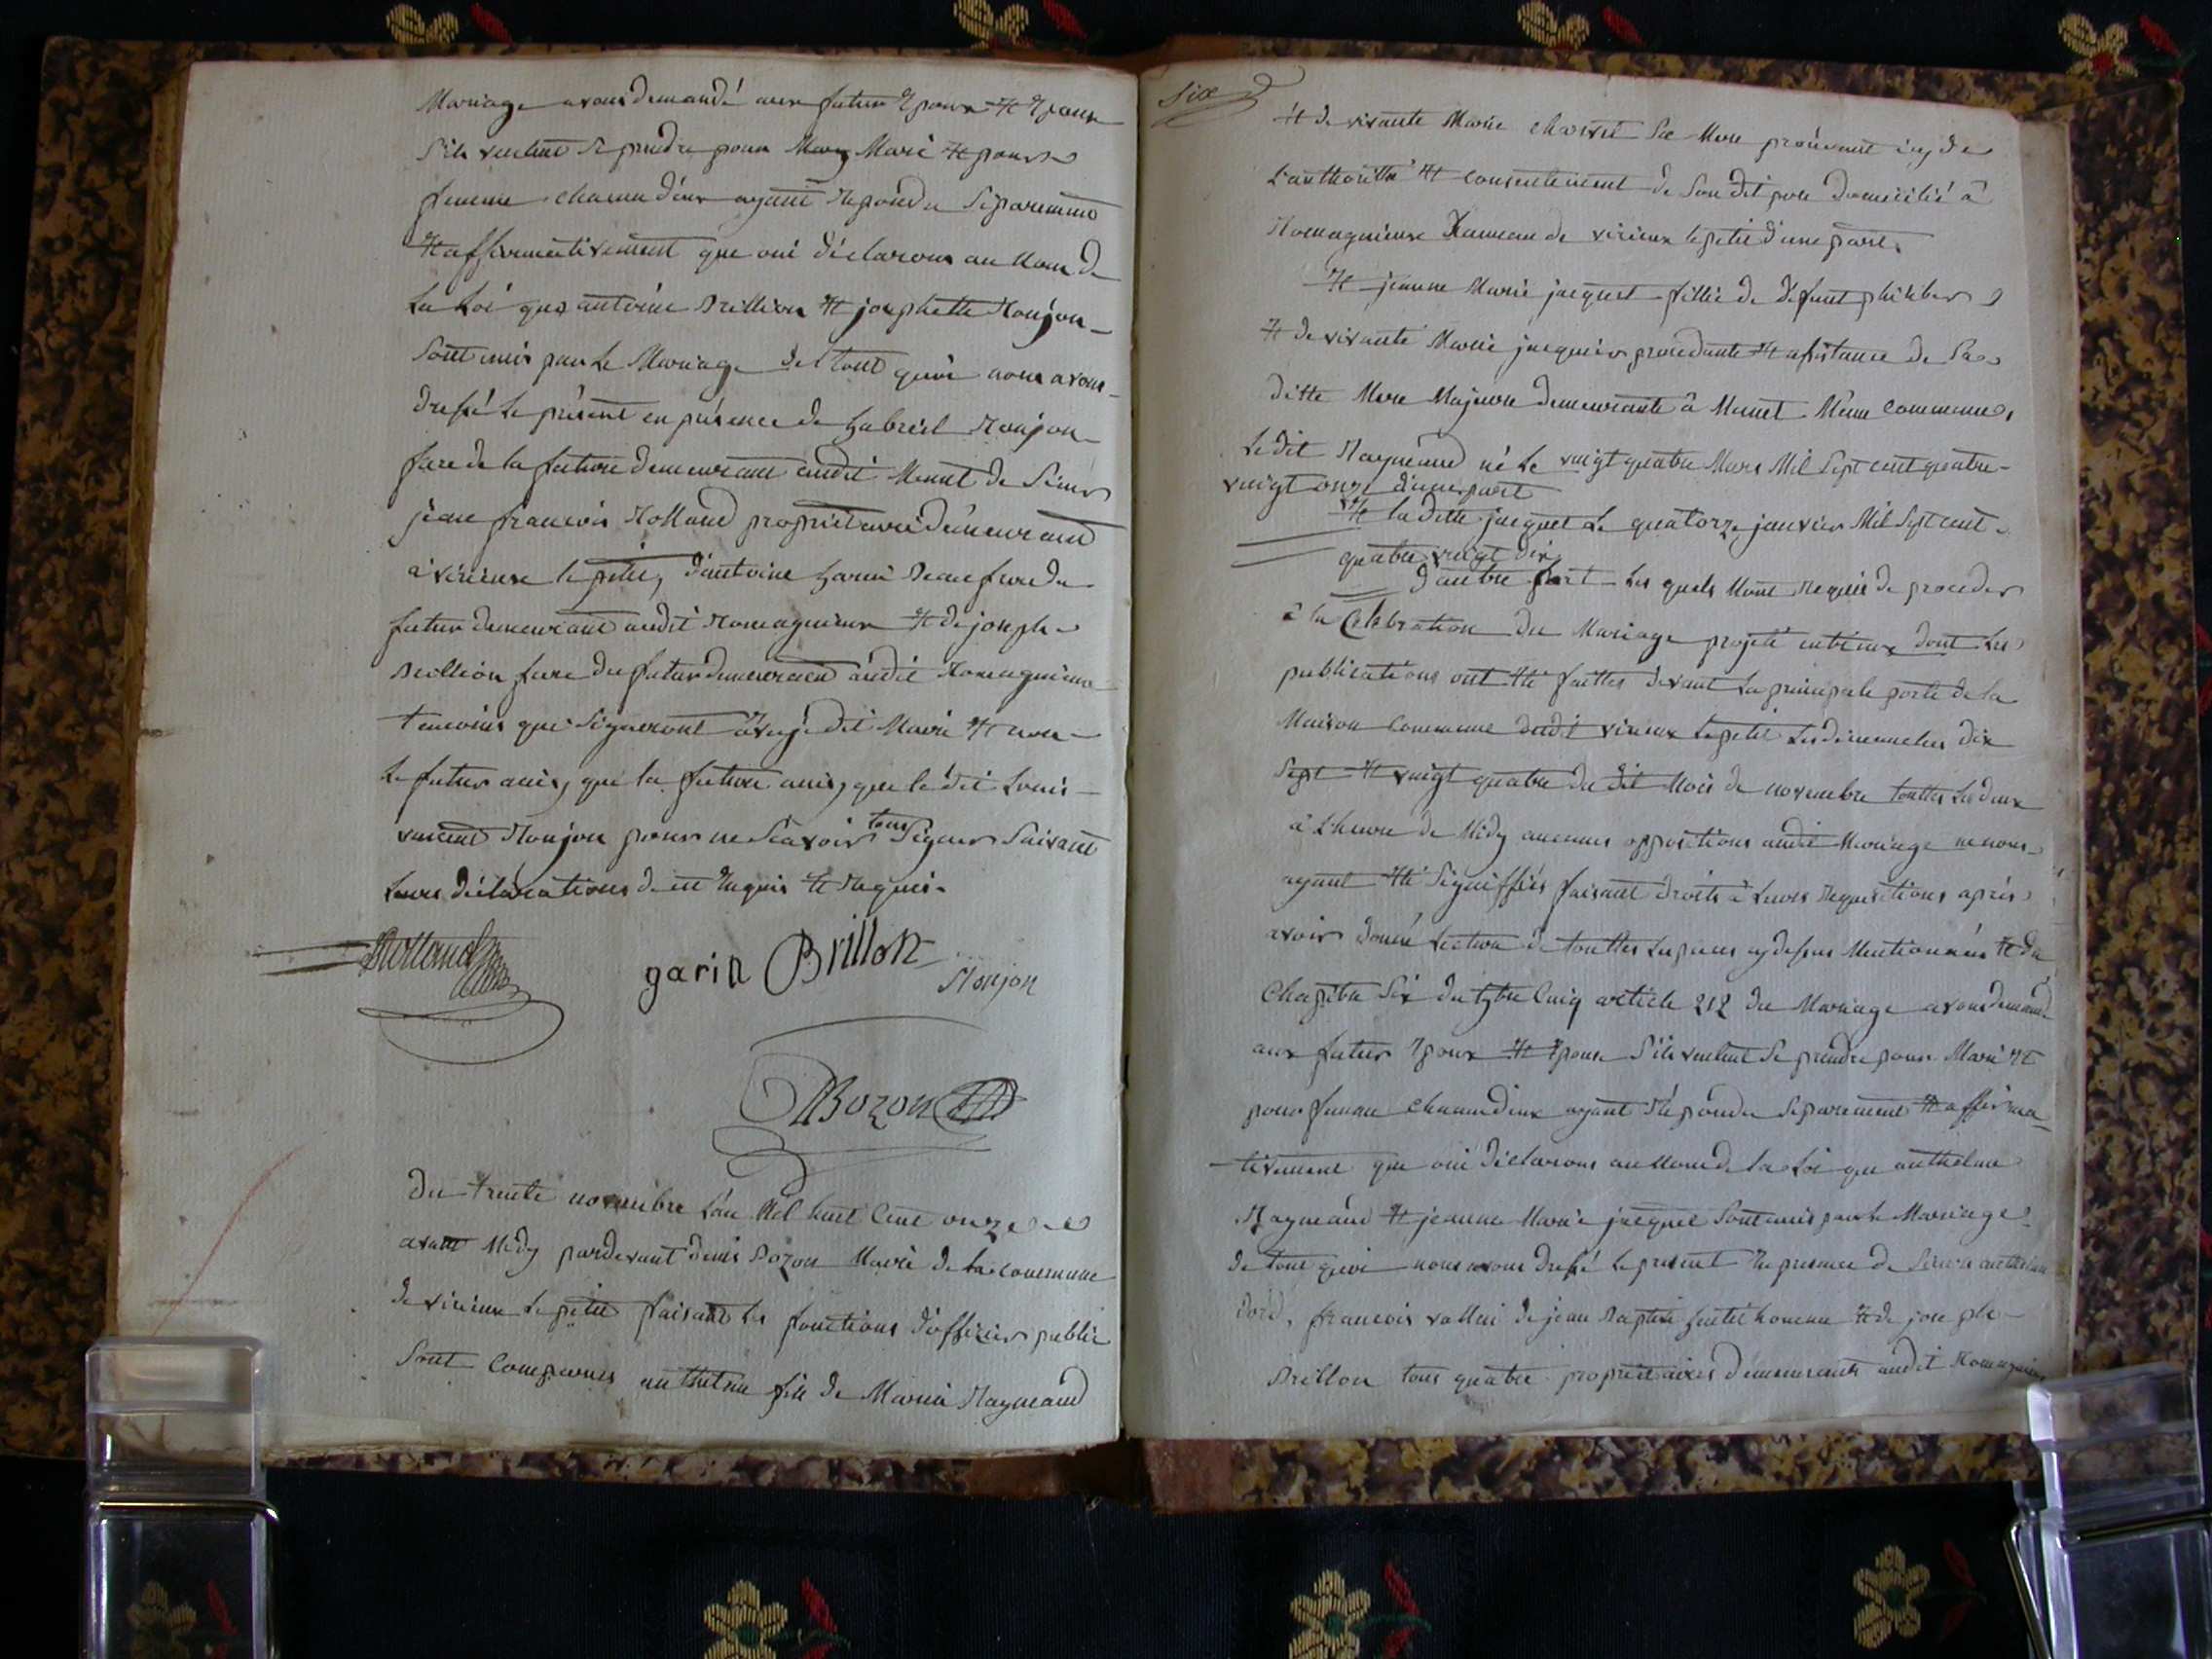 Mariage avons demandé aux futur Epoux Et Epouse
S'ils veulent Se prendre pour Mary Mari Et pour
femme chacun d'eux ayant Repondu Séparemment
Et affirmativement que oui déclarons au Nom de
La Loi que antoine Brillion Et josephette Monjon
Sont unis par Le Mariage de tout quoi nous avons
dressé Le présent en présence de Gabriel Monjon
frere de la future demeurant audit Munet de Sieur
jean francois Rolland propriétaire demeurant
à virieux le petit, d'antoine Garin Beau frere du
futur demeurant audit Romagnieux Et de joseph
Brillion frere du futur demeurant audit Romagnieux
temoins qui Signeront avec dit Maire Et non
Le futur ainsy que la future ainsy que le dit Louis
vincent Monjon pour ne Scavoir tous Signer Suivant
Leurs déclarations de ce Enquis Et Requis.
Rolland
garin Brillon Monjon
Bozon
Du trente novembre L'an Mil huit Cent onze
avant Midy pardevant denis Bozon Maire de la commune
de virieux Le petit faisant les fonctions d'officier public
Sont Comparus anthelme fils de Marin Raymand
Six
Et de vivante Marie Sa Mere procédant icy de
L'authoritté Et consentement de Son dit pere domicilié à
Romagnieux hameau de virieux le petit d'une part.
Et jeanne Marie jacquet fille de défunt philiber
Et de vivante Marie procedante Et assistance de Sa
ditte Mere Majeure demeurante à Munet Même commune,
Le dit Raymand né Le vingt quatre Mars Mil Sept cent quatre
vingt onze d'une part
Et la ditte jacquet Le quatorze janvier Mil Sept cent
quatre vingt dix
d'autre part Les quels Nont Requis de proceder
à la Célébration du Mariage projeté entreux dont Les
publications ont été faittes devant La principale porte de la
Maison Commune dudit virieux Lepetit Les dimanches dix
Sept Et vingt quatre du dit Mois de novembre touttes Les deux
à L'heure de Midy aucunes oppositions audit Mariage ne nous
ayant été Signiffiées faisant droits à Leurs Requisitions après
avoir donné Lecture de touttes Les pieces cy dessus Mentionnées Et du
Chapitre Six du tytre Cinq article 212 du Mariage avons demandé
aux futur Epoux Et Epouse S'ils veulent Se prendre pour Mari Et
pour femme chacun deux ayant Répondu Séparement Et affirma
tivement que oui déclarons au Nom de la Loi que anthelme
Raymand Et jeanne Marie jacquet Sont unis par Le Mariage
de tout quoi nous avons dressé Le présent En présence de Sieurs anthelme
francois vallin de jean Baptiste gentil homme Et de joseph
Brillon tous quatre propriétaires demeurants audit Romagnieux